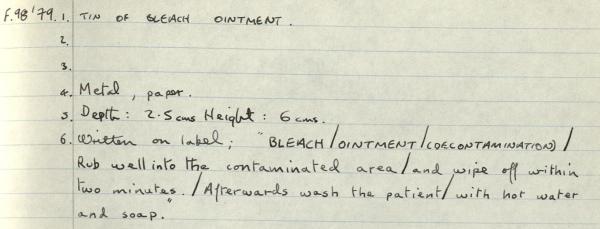 F.98'79. 1. TIN OF BLEACH OINTMENT.
2.
3.
4. Metal, paper.
5. Depth: 2.5cms Height: 6cms.
6. Written on label; "BLEACH/OINTMENT/(DECONTAMINATION)/
Rub well into the contaminated area/and wipe off within
two minutes"./Afterwards wash the patient/with hot water
and soap."